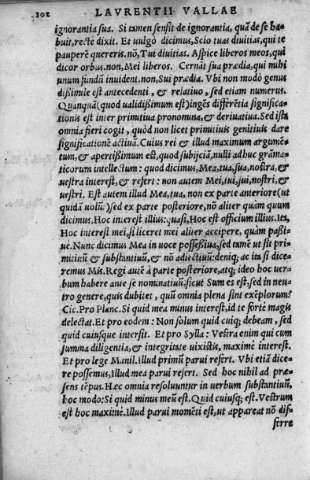 102 LAVRENTII VALLAE
ignorantia sua. Si tamen sensit de ignorantia, quã de se ha-
buit, recte dixit. Et uulgò dicimus, Scio tuas diuitias, qui te
pauperẽ quereris. nõ, Tui diuitias. Aspice liberos meos, qui
dicor orbus. non, Mei liberos. Cernis sua prædia, qui mihi
unum fundũ inuident. non, Sui prædia. Vbi non modò genus
dissimile est antecedenti, & relatiuo, sed etiam numerus.
Quanquã (quod ualidissimum est) ingẽs differẽtia significa-
tionis est inter primitiua pronomina, & deriuatiua. Sed ista
omnia fieri cogit, quòd non licet primitiuis genitiuis dare
significationẽ actiuã. Cuius rei & illud maximum argumẽ-
tum, & apertissimum est, quod subijciã, nulli adhuc grãma-
ticorum intellectum: quod dicimus, Mea, tua, sua, nostra, &
uestra interest, & refert: non autem Mei, tui, sui, nostri, &
uestri. Est autem illud Mea, tua, non ex parte anteriore (ut
quidã uolũt) sed ex parte posteriore, nõ aliter quàm quum
dicimus, Hoc interest illius: quasi, Hoc est officium illius. ita,
Hoc interest mei, si liceret mei aliter accipere, quàm passi-
uè. Nunc dicimus Mea in uoce possessiua, sed tamẽ ut sit pri-
mitiuũ & substantiuũ, & nõ adiectiuũ: deniq; ac si si dice-
remus Mis. Regi autẽ à parte posteriore, atq; ideo hoc uer-
bum habere ante se nominatiuũ, sicut Sum es est, sed in neu-
tro genere, quis dubitet, quũ omnia plena sint exẽplorum?
Cic. Pro Planc. Si quid mea minus interest, id te fortè magis
delectat. Et pro eodem: Non solum quid cuiq; debeam, sed
quid cuiusque intersit. Et pro Sylla: Vestra enim qui cum
summa diligentia, & integritate uixistis, maximè interest.
Et pro lege Manil. Illud primũ parui refert. Vbi etiã dice-
re possemus, Illud mea parui refert. Sed hoc nihil ad præ-
sens tẽpus. Hæc omnia resoluuntur in uerbum substantiuũ,
hoc modo: Si quid minus meũ est. Quid cuiusq; est. Vestrum
est hoc maximè. Illud parui momẽti est, ut appareat nõ dif-
ferre